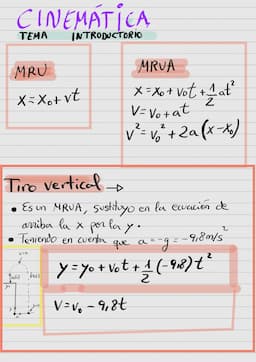 CINEMÁTICA
TEMA INTRODUCTORIO
MRU
x = x₀ + vt
MRUA
x = x₀ + v₀t + 1/2 at²
V = V₀ + at
V² = V₀² + 2a(x - x₀)
Tiro vertical →
• Es un MRUA, sustituyo en la ecuación de
arriba la x por la y.
• Teniendo en cuenta que a = -g = -9,8 m/s²
y = y₀ + v₀t + 1/2 (-9,8) t²
V = V₀ - 9,8t